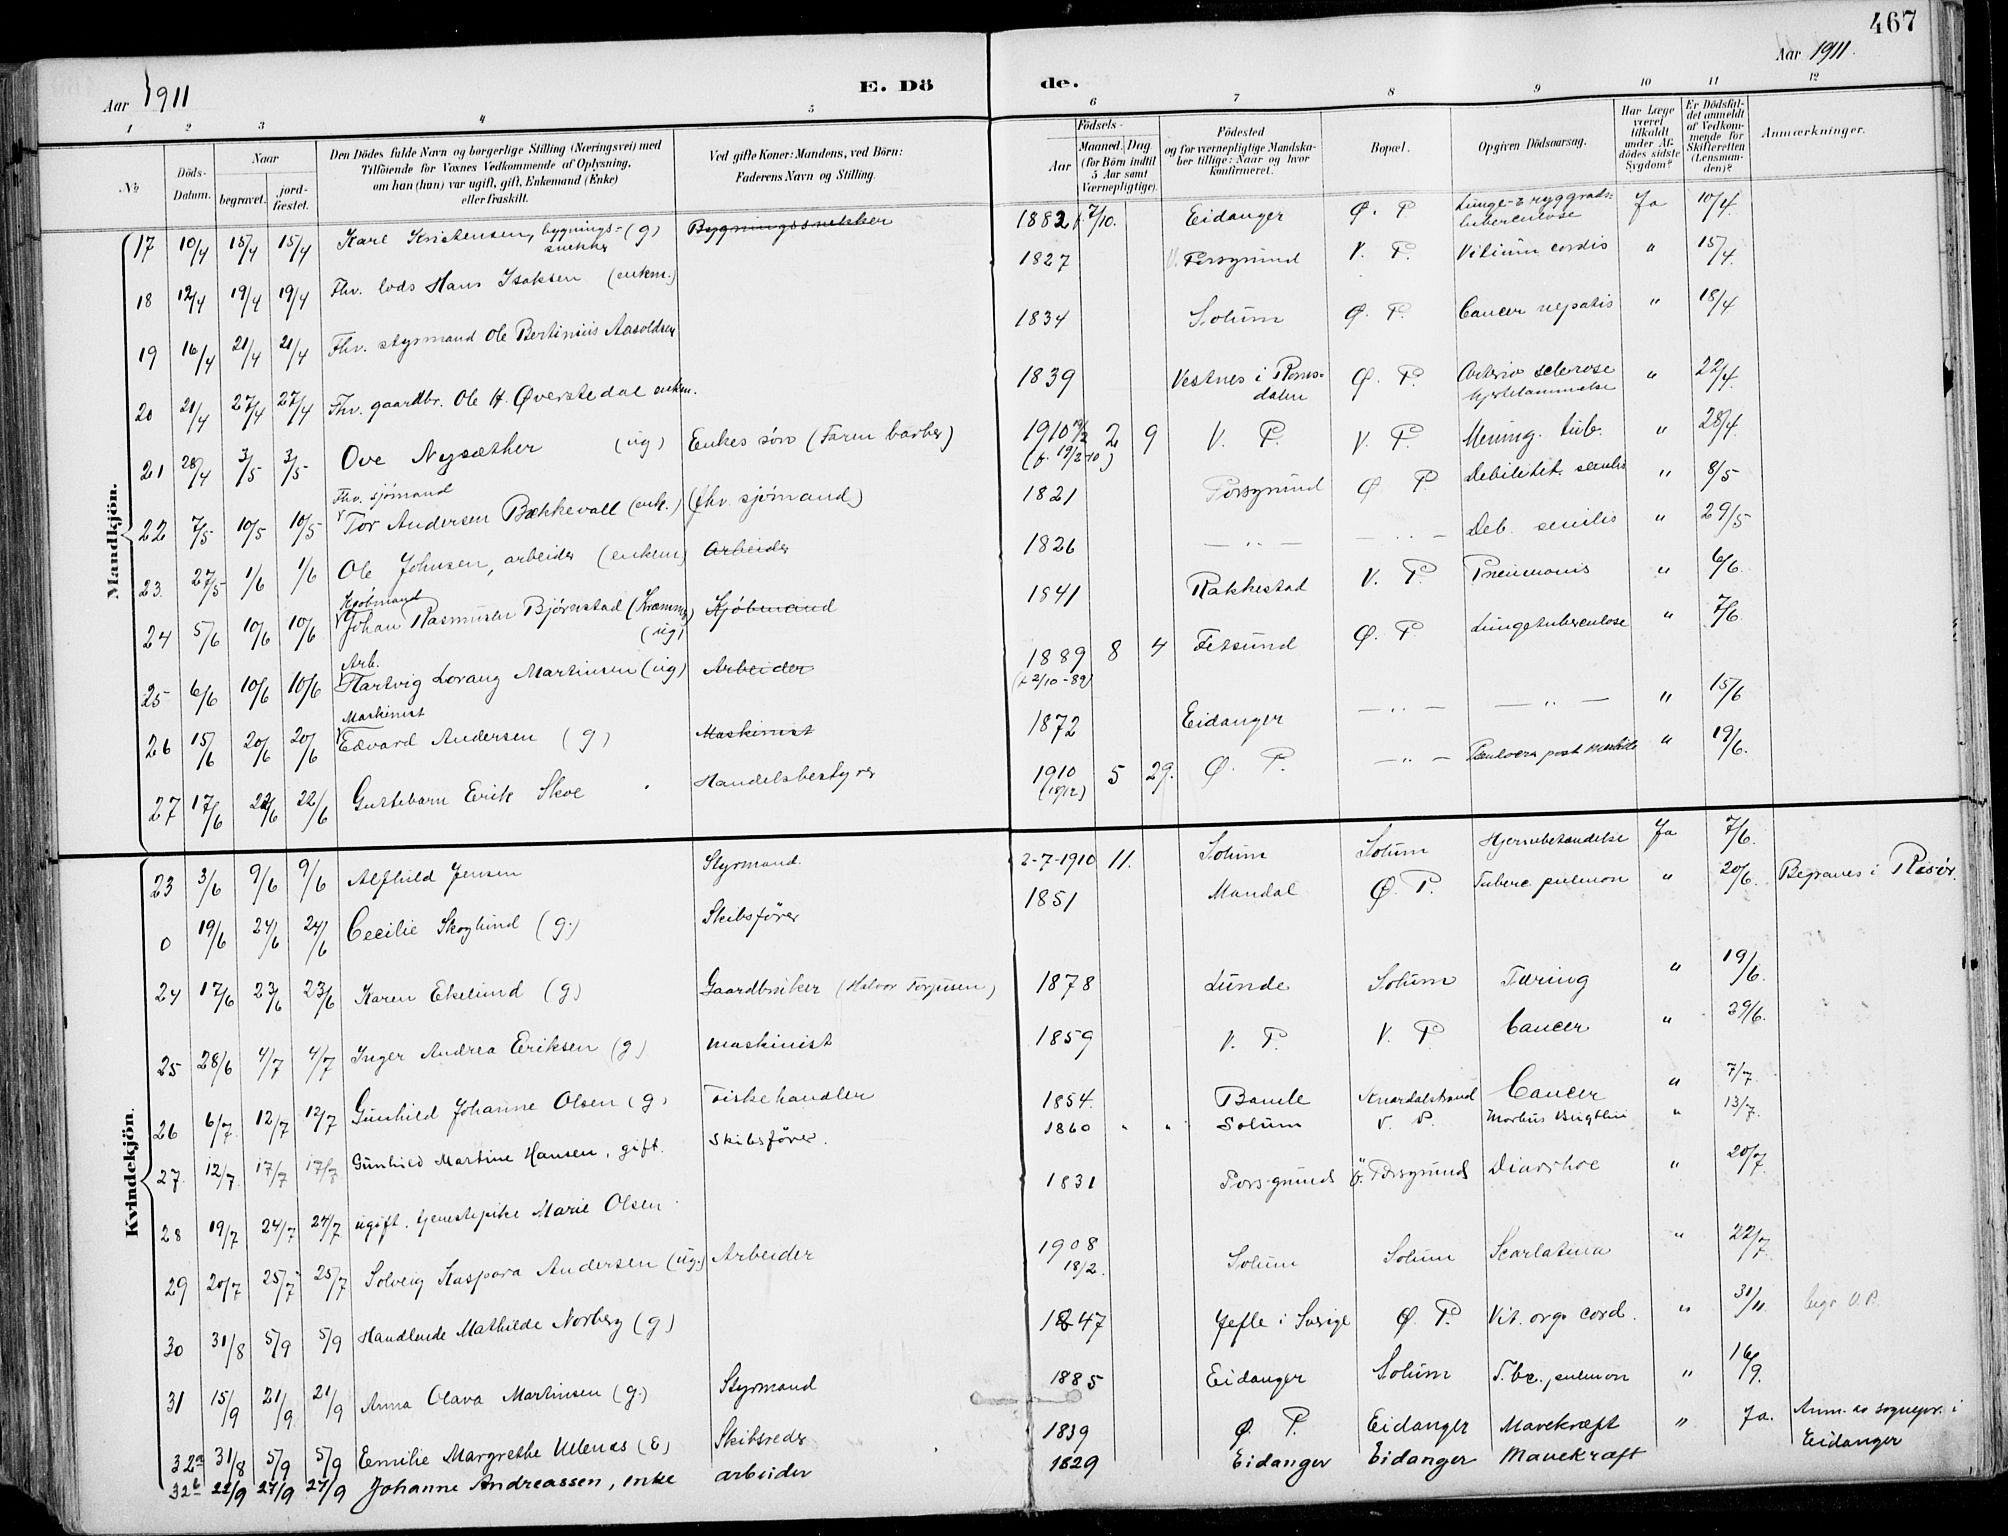 467
Aar 1911
E. Dö de.
Aar 1911.
1 2 3 4 5 6 7 8 9 10 11 12
No
Döds-Datum.
Naar
begravet.
jord-fæstet.
Den Dödes fulde Navn og borgerlige Stilling (Næringsvei) med
Tilföiende for Voxnes Vedkommende af Oplysning,
om han (hun) var ugift, gift, Enkemand (Enke)
eller fraskilt.
Ved gifte Koner: Mandens, ved Börn:
Faderens Navn og Stilling.
Födsels-
Aar
Maaned. Dag
(for Börn indtil
5 Aar samt
Værnepligtige).
Födested
og for værnepligtige Mandska-
ber tillige: Naar og hvor
konfirmeret.
Bopæl.
Opgiven Dödsaarsag.
Har Læge
været
tilkaldt
under Af-
dödes sidste
Sygdom?
Er Dödsfal-
det anmeldt
af Vedkom-
mende for
Skifteretten
(Lensman-
den)?
Anmærkninger.
Mandkjön.
17 10/4 15/4 15/4 Karl Kristensen, bygnings-snekker (g) Bygningssnekker 1882 f. 7/10. Eidanger Ø. P Lunge- & ryggrads-tuberculose Ja 10/4.
18 12/4 19/4 19/4 Fhv. lods Hans Isaksen (enkm.) 1827 V. Porsgrund V. P. Vitium cordis " 15/4.
19 16/4 21/4 21/4 Fhv. styrmand Ole Bertinius Aasoldsen 1834 Solum Ø. P. Cancer hepatis " 18/4
20 21/4 27/4 27/4 Fhv. gaardbr. Ole H. Øverstedal enkem. 1839 Vestnes i Roms-dalen Ø. P. Arterio sclerose hjertelammelse " 22/4.
21 28/4 3/5 3/5 Ove Nysæther (ug) Enkes søn (Faren barber) 1910 19/2 (f. 19/2 10) 2 9 V. P. V. P. Mening. tub. " 28/4.
22 7/5 10/5 10/5 Fhv. sjømand Tor Andersen Bækkevall (enk.) (fhv. sjømand) 1821 Porsgrund Ø P. Debilitet. senilis " 8/5
23. 27/5 1/6 1/6 Ole Johnsen, arbeider (enkem) Arbeider 1826 — " — — " — Deb. senilis " 29/5
24 5/6 10/6 10/6 Kjøbmand Johan Rasmussen Bjørnstad (Kræmmer) (ug) Kjøbmand 1841 Rakkestad V. P. Pneumonis " 6/6.
25 6/6 10/6 10/6 Arb. Hartvig Lorang Martinsen (ug) Arbeider 1889 (f 2/10-89) 8 4 Fetsund Ø. P Lungetuberculose " 7/6.
26 15/6 20/6 20/6 Maskinist Edvard Andersen (g) Maskinist 1872 Eidanger — " — — " — " 15/6
27 17/6 22/6 22/6 Guttebarn Erik Skoe Handelsbestyrer 1910 (19/12) 5 29. Ø. P. — " — post " 19/6.
Kvindekjön.
23 3/6 9/6 9/6 Alfhild Jensen Styrmand. 2-7-1910 11. Solum Solum Hjernebetændelse Ja 7/6.
0 19/6 24/6 24/6 Cecilie Skoglund (g.) Skibsfører 1851 Mandal Ø. P. Tuberc pulmon " 20/6. Begraves i Risør.
24 17/6 23/6 23/6 Karen Ekelund (g) Gaardbruker (Halvor Torjusen) 1878 Lunde Solum Tæring " 19/6.
25 28/6 4/7 4/7 Inger Andrea Eriksen (g) maskinist 1859 V. P. V. P. Cancer " 29/6.
26 6/7 12/7 12/7 Gunhild Johanne Olsen (g) Fiskehandler 1854. Bamle Knardalstrand Cancer " 7/7.
27. 12/7. 17/7 17/7 Gunhild Martine Hansen, gift. Skibsfører. 1860 " " Solum V. P. Morbus Brigthii " 13/7.
28 19/7 24/7 24/7 ugift. tjenestepike Marie Olsen. 1831 Porsgrund Ö. Porsgrund Diarrhoe " 20/7.
29 20/7 25/7 25/7 Solveig Kaspara Andersen (ug.) Arbeider 1908 18/2. Solum Solum Scarlatina " 22/7.
30 31/8 5/9 5/9 Handlende Mathilde Norberg (g) 1847 Jefle i Sverige Ø. P. Vit. org. cord. " 31/11. begr. V. P.
31 15/9 21/9 21/9 Anna Olava Martinsen (g.) Styrmand 1885 Eidanger Solum T.bc. pulmon " 16/9.
32a 31/8 5/9 5/9 Emilie Margrethe (E) Skibsreder 1839 Ø. P. Eidanger Mavekræft " Ja. Anm. av sognepr. i Eidanger
32b 22/9 27/9 27/9 Johanne Andreassen, enke arbeider 1829 Eidanger Eidanger Mavekræft